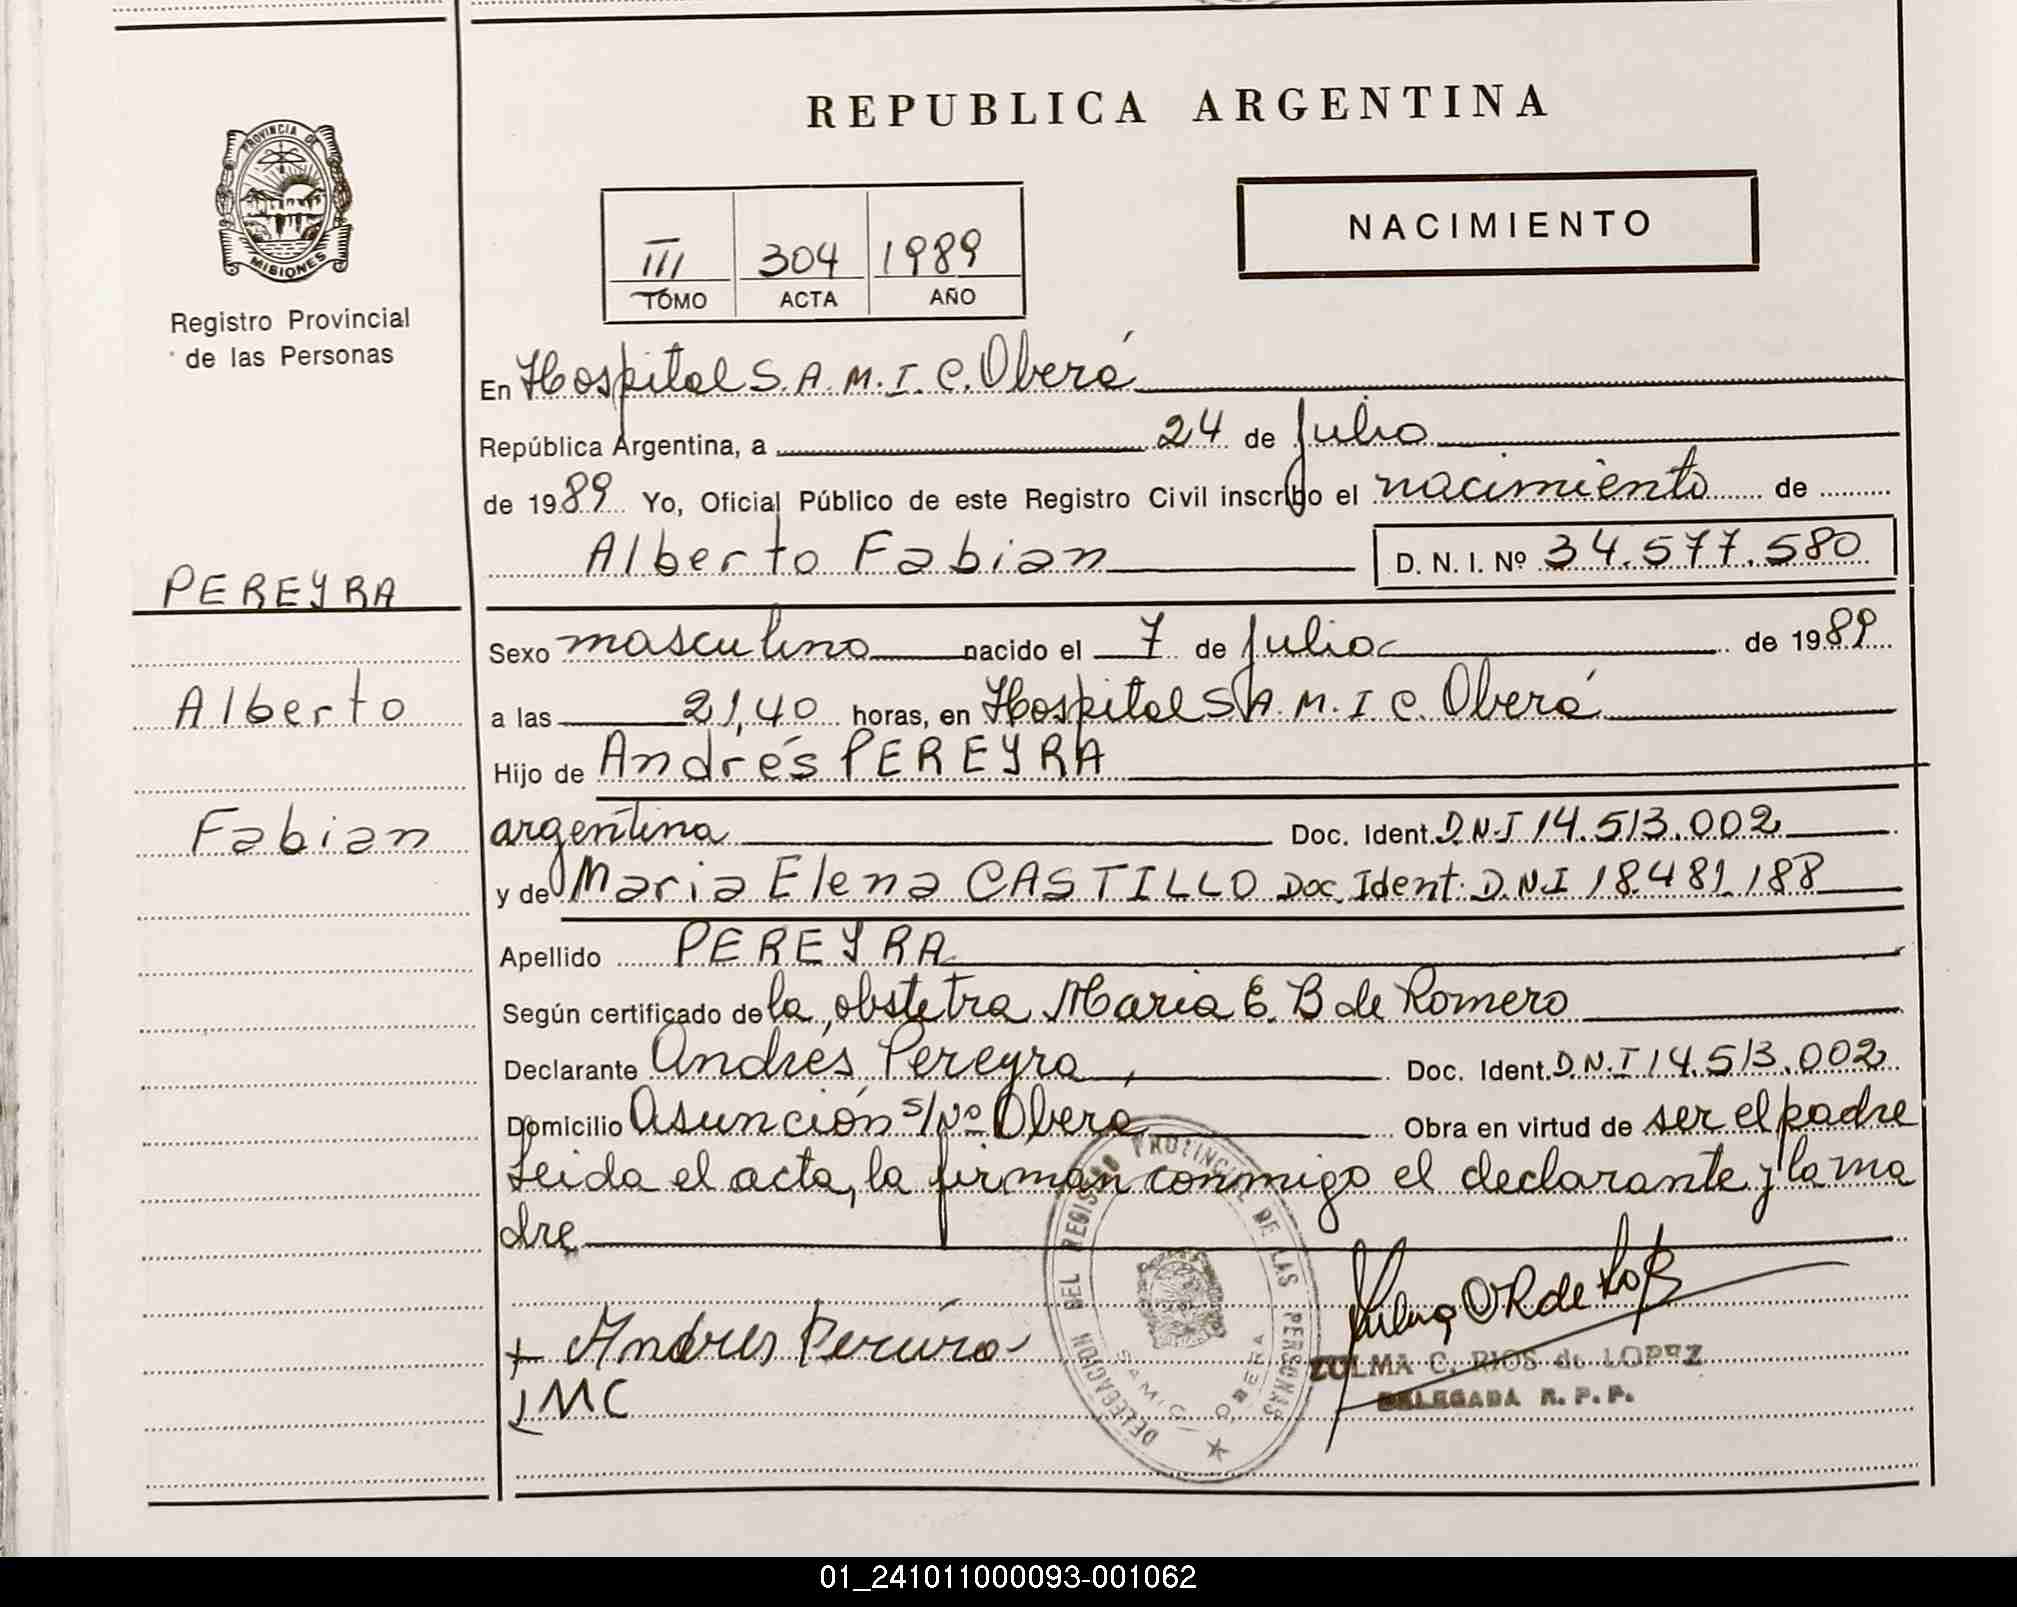 REPUBLICA ARGENTINA
PROVINCIA DE
MISIONES
Registro Provincial
de las Personas
NACIMIENTO
III 304 1989
TOMO ACTA AÑO
En Hospital S.A.M.I.C. Oberá
República Argentina, a 24 de Julio
de 1989 Yo, Oficial Público de este Registro Civil inscribo el nacimiento de
Alberto Fabian D. N. I. Nº 34.577.580
PEREYRA
Alberto
Fabian
Sexo masculino nacido el 7 de Julio de 1989
a las 21,40 horas, en Hospital S.A.M.I.C. Oberá
Hijo de Andrés PEREYRA
argentina Doc. Ident. D.N.I 14.513.002
y de Maria Elena CASTILLO Doc. Ident. D.N.I 18.481.188
Apellido PEREYRA
Según certificado de la obstetra Maria E. B de Romero
Declarante Andrés Pereyra, Doc. Ident. D.N.I 14.513.002
Domicilio Asunción s/Nº Obera Obra en virtud de ser el padre
Leida el acta, la firman conmigo el declarante y la ma
dre
DELEGACION DEL REGISTRO PROVINCIAL DE LAS PERSONAS
SAMIC OBERA
+ Andres
ZULMA C. RIOS de LOPEZ
DELEGADA R.P.P.
MC
01_241011000093-001062